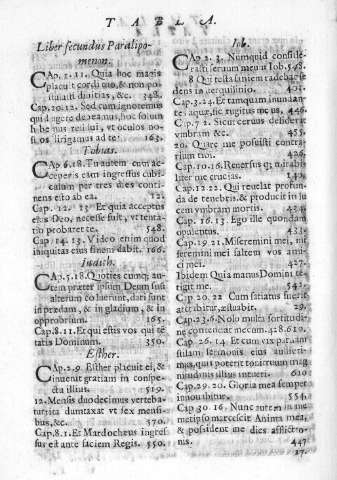 TABLA.
Liber secundus Paralipo-
menon.
CAp. 1. 11. Quia hoc magis
placuit cordi tuo, & non pos-
tulasti divitias, &c. 348.
Cap. 20. 12. Sed cum ignoremus
quid agere debeamus, hoc solum
habemus residui, ut oculos nos-
tros dirigamus ad te. 163.
Tobias.
CAp. 6. 18. Tu autem cum ac-
ceperis eam ingressus cubi-
culum per tres dies conti-
nens esto ab ea. 42.
Cap. 12. 13 Et quia acceptus
eras Deo, necesse fuit, ut tenta-
tio probaret te. 548.
Cap. 14. 13. Video enim quod
iniquitas eius finem dabit. 166.
Iudith.
CAp. 5. 18. Quoties cumq; au-
tem præter ipsum Deum suũ
alterum coluerunt, dati sunt
in prædam, & in gladium, & in
opprobrium. 165.
Cap. 8. 11. Et qui estis vos qui tẽ
tatis Dominum. 350.
Esther.
CAp. 2. 9 Esther placuit ei, &
invenit gratiam in conspe-
ctu illius. 519.
12. Mensis duodecimus verteba-
tur ita dumtaxat ut sex mensi-
bus, &c. 570.
Cap. 8. 1. Et Mardocheus ingres
sus est ante faciem Regis. 550.
Iob.
CAp. 2. 3. Numquid conside-
rasti servum meum Iob. 548.
8 Qui testa saniem radebat se-
dens in sterquilinio. 405.
Cap. 3. 24. Et tamquam inundan-
tes aquæ, sic rugitus meus. 446.
Cap. 7. 2. Sicut cervus desiderat
umbram &c. 455.
20. Quare me posuisti contra-
rium tibi. 426.
Cap. 10. 16. Reversus q; mirabi-
liter me crucias. 140.
Cap. 12. 22. Qui revelat profun-
da de tenebris, & producit in lu
cem umbram mortis. 434.
Cap. 16. 13. Ego ille quondam
opulentus. 453.
Cap. 19. 21. Miseremini mei, mi
seremini mei saltem vos ami-
ci mei. 427.
Ibidem Quia manus Domini te-
tigit me. 542.
Cap. 20. 22 Cum satiatus fuerit
arctabitur, æstuabit. 29.
Cap. 23. 6. Nolo multa fortitudi-
ne contendat mecum. 428. 619.
Cap. 26. 14. Et cum vix parvam
stillam sermonis eius audieri-
mus, quis poterit tonitruum mag
nitudinis illius intueri. 620
Cap. 29. 20. Gloria mea semper
innovabitur. 554.
Cap 30. 16. Nunc autem in me-
metipso marcescit Anima mea,
& possident me dies afflictio-
nis. 447
27.